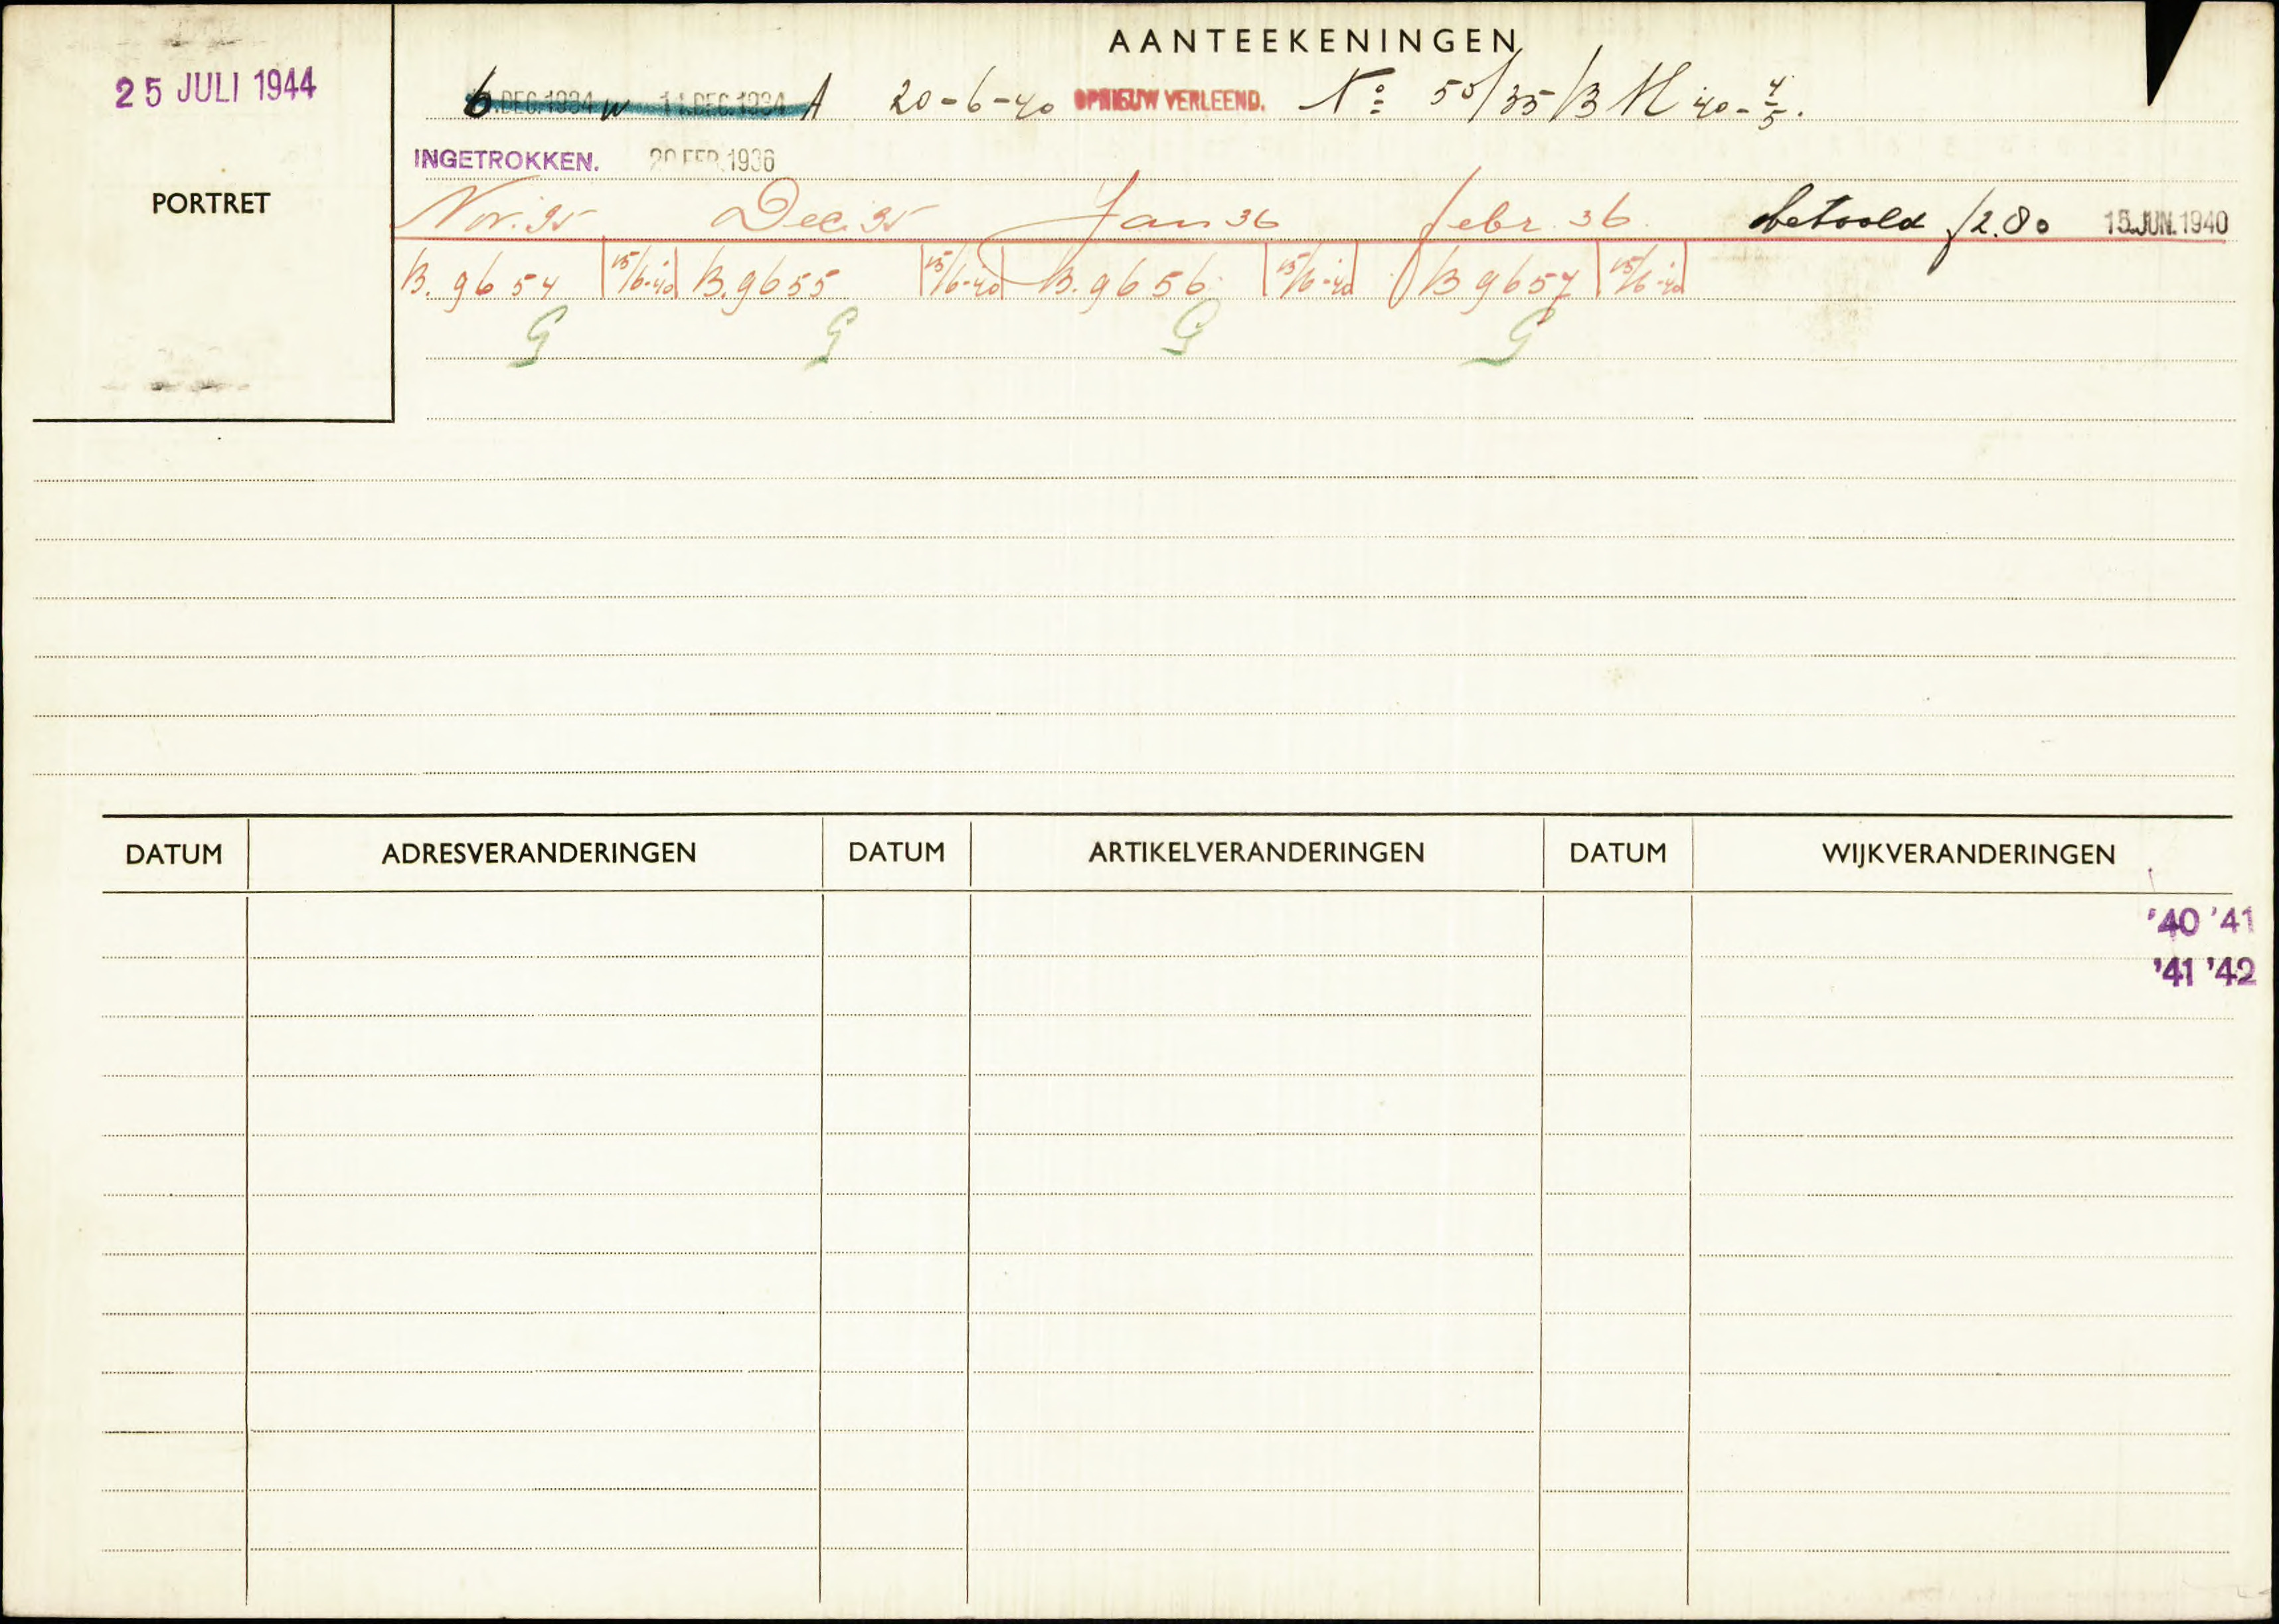 AANTEEKENINGEN
25 JULI 1944
6 DEC. 1934 w 11. DEC. 1934 A 20-6-40 OPNIEUW VERLEEND. No 55/35/3 M '40 - 4/5.
INGETROKKEN. 20 FEB. 1936
PORTRET
Nov. 35 Dec. 35 Jan 36 febr. 36. betaald f 2.80 15. JUN. 1940
B. 9654 15/6-40 B. 9655 15/6-40 B. 9656 15/6-40 B 9657 15/6-40
G G G G
DATUM ADRESVERANDERINGEN DATUM ARTIKELVERANDERINGEN DATUM WIJKVERANDERINGEN
'40 '41
'41 '42